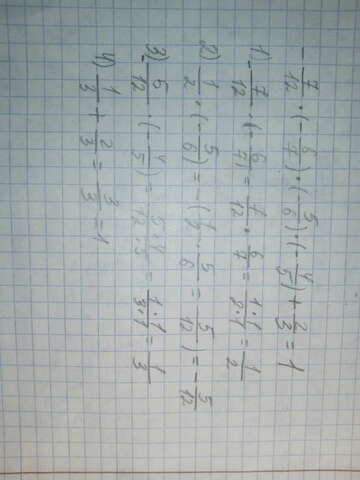 - 7/12 · (- 6/7) · (- 5/6) · (- 4/5) + 2/3 = 1
1) - 7/12 · (- 6/7) = 7/12 · 6/7 = 1·1/2·1 = 1/2
2) 1/2 · (- 5/6) = - (1/2 · 5/6 = 5/12) = - 5/12
3) - 5/12 · (- 4/5) = 5·4/12·5 = 1·1/3·1 = 1/3
4) 1/3 + 2/3 = 3/3 = 1